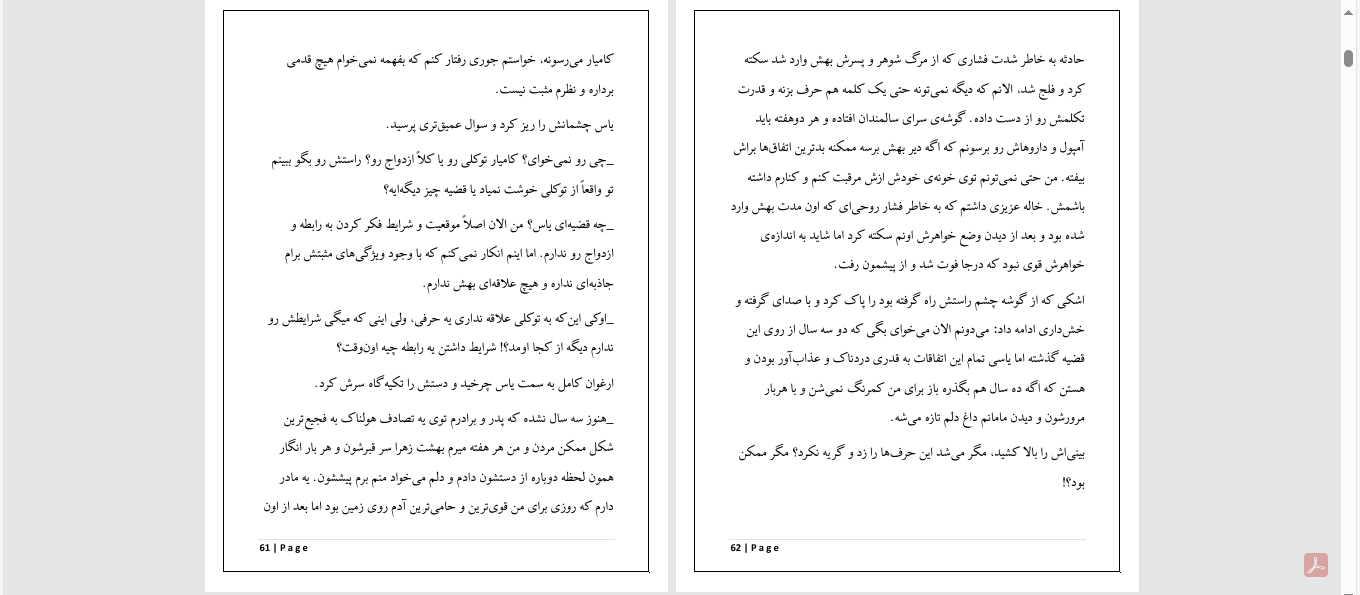 کامیار می‌رسونه، خواستم جوری رفتار کنم که بفهمه نمی‌خوام هیچ قدمی
برداره و نظرم مثبت نیست.
یاس چشمانش را ریز کرد و سوال عمیق‌تری پرسید.
_چی رو نمی‌خوای؟ کامیار توکلی رو یا کلاً ازدواج رو؟ راستش رو بگو ببینم
تو واقعاً از توکلی خوشت نمیاد یا قضیه چیز دیگه‌ایه؟
_چه قضیه‌ای یاس؟ من الان اصلاً موقعیت و شرایط فکر کردن به رابطه و
ازدواج رو ندارم. اما اینم انکار نمی‌کنم که با وجود ویژگی‌های مثبتش برام
جاذبه‌ای نداره و هیچ علاقه‌ای بهش ندارم.
_اوکی این‌که به توکلی علاقه نداری یه حرفی، ولی اینی که میگی شرایطش رو
ندارم دیگه از کجا اومد؟! شرایط داشتن یه رابطه چیه اون‌وقت؟
ارغوان کامل به سمت یاس چرخید و دستش را تکیه‌گاه سرش کرد.
_هنوز سه سال نشده که پدر و برادرم توی یه تصادف هولناک به فجیع‌ترین
شکل ممکن مردن و من هر هفته میرم بهشت زهرا سر قبرشون و هر بار انگار
همون لحظه دوباره از دستشون دادم و دلم می‌خواد منم برم پیششون. یه مادر
دارم که روزی برای من قوی‌ترین و حامی‌ترین آدم روی زمین بود اما بعد از اون
61 | Page
حادثه به خاطر شدت فشاری که از مرگ شوهر و پسرش بهش وارد شد سکته
کرد و فلج شد، الانم که دیگه نمی‌تونه حتی یک کلمه هم حرف بزنه و قدرت
تکلمش رو از دست داده. گوشه‌ی سرای سالمندان افتاده و هر دوهفته باید
آمپول و داروهاش رو برسونم که اگه دیر بهش برسه ممکنه بدترین اتفاق‌ها براش
بیفته. من حتی نمی‌تونم توی خونه‌ی خودش ازش مرقبت کنم و کنارم داشته
باشمش. خاله عزیزی داشتم که به خاطر فشار روحی‌ای که اون مدت بهش وارد
شده بود و بعد از دیدن وضع خواهرش اونم سکته کرد اما شاید به اندازه‌ی
خواهرش قوی نبود که درجا فوت شد و از پیشمون رفت.
اشکی که از گوشه چشم راستش راه گرفته بود را پاک کرد و با صدای گرفته و
خش‌داری ادامه داد: می‌دونم الان می‌خوای بگی که دو سه سال از روی این
قضیه گذشته اما یاسی تمام این اتفاقات به قدری دردناک و عذاب‌آور بودن و
هستن که اگه ده سال هم بگذره باز برای من کمرنگ نمی‌شن و با هربار
مرورشون و دیدن مامانم داغ دلم تازه می‌شه.
بینی‌اش را بالا کشید، مگر می‌شد این حرف‌ها را زد و گریه نکرد؟ مگر ممکن
بود؟!
62 | Page